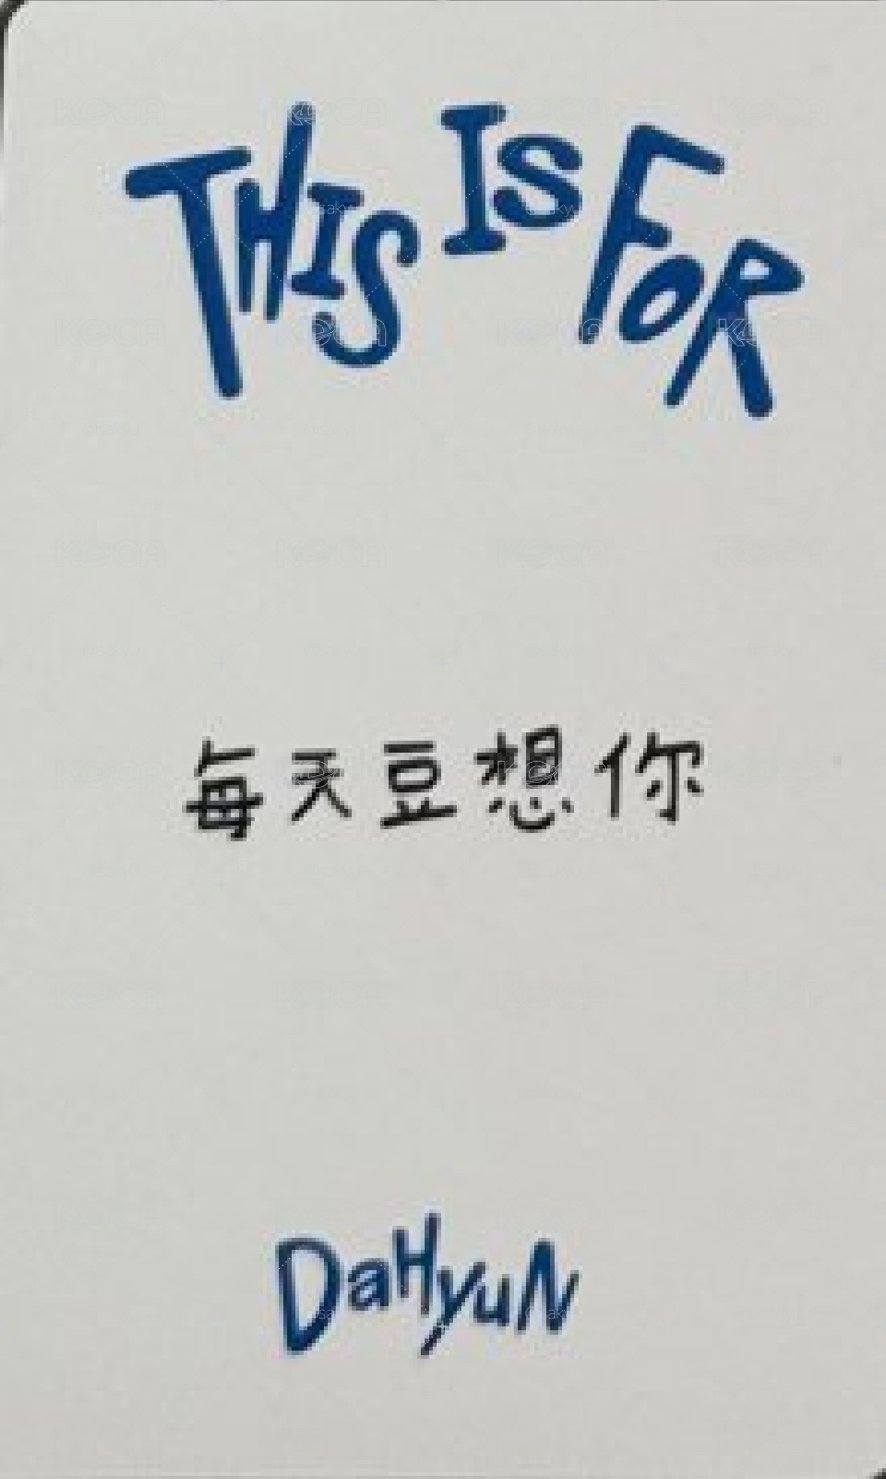 THIS IS FOR
每天豆想你
DaHyuN